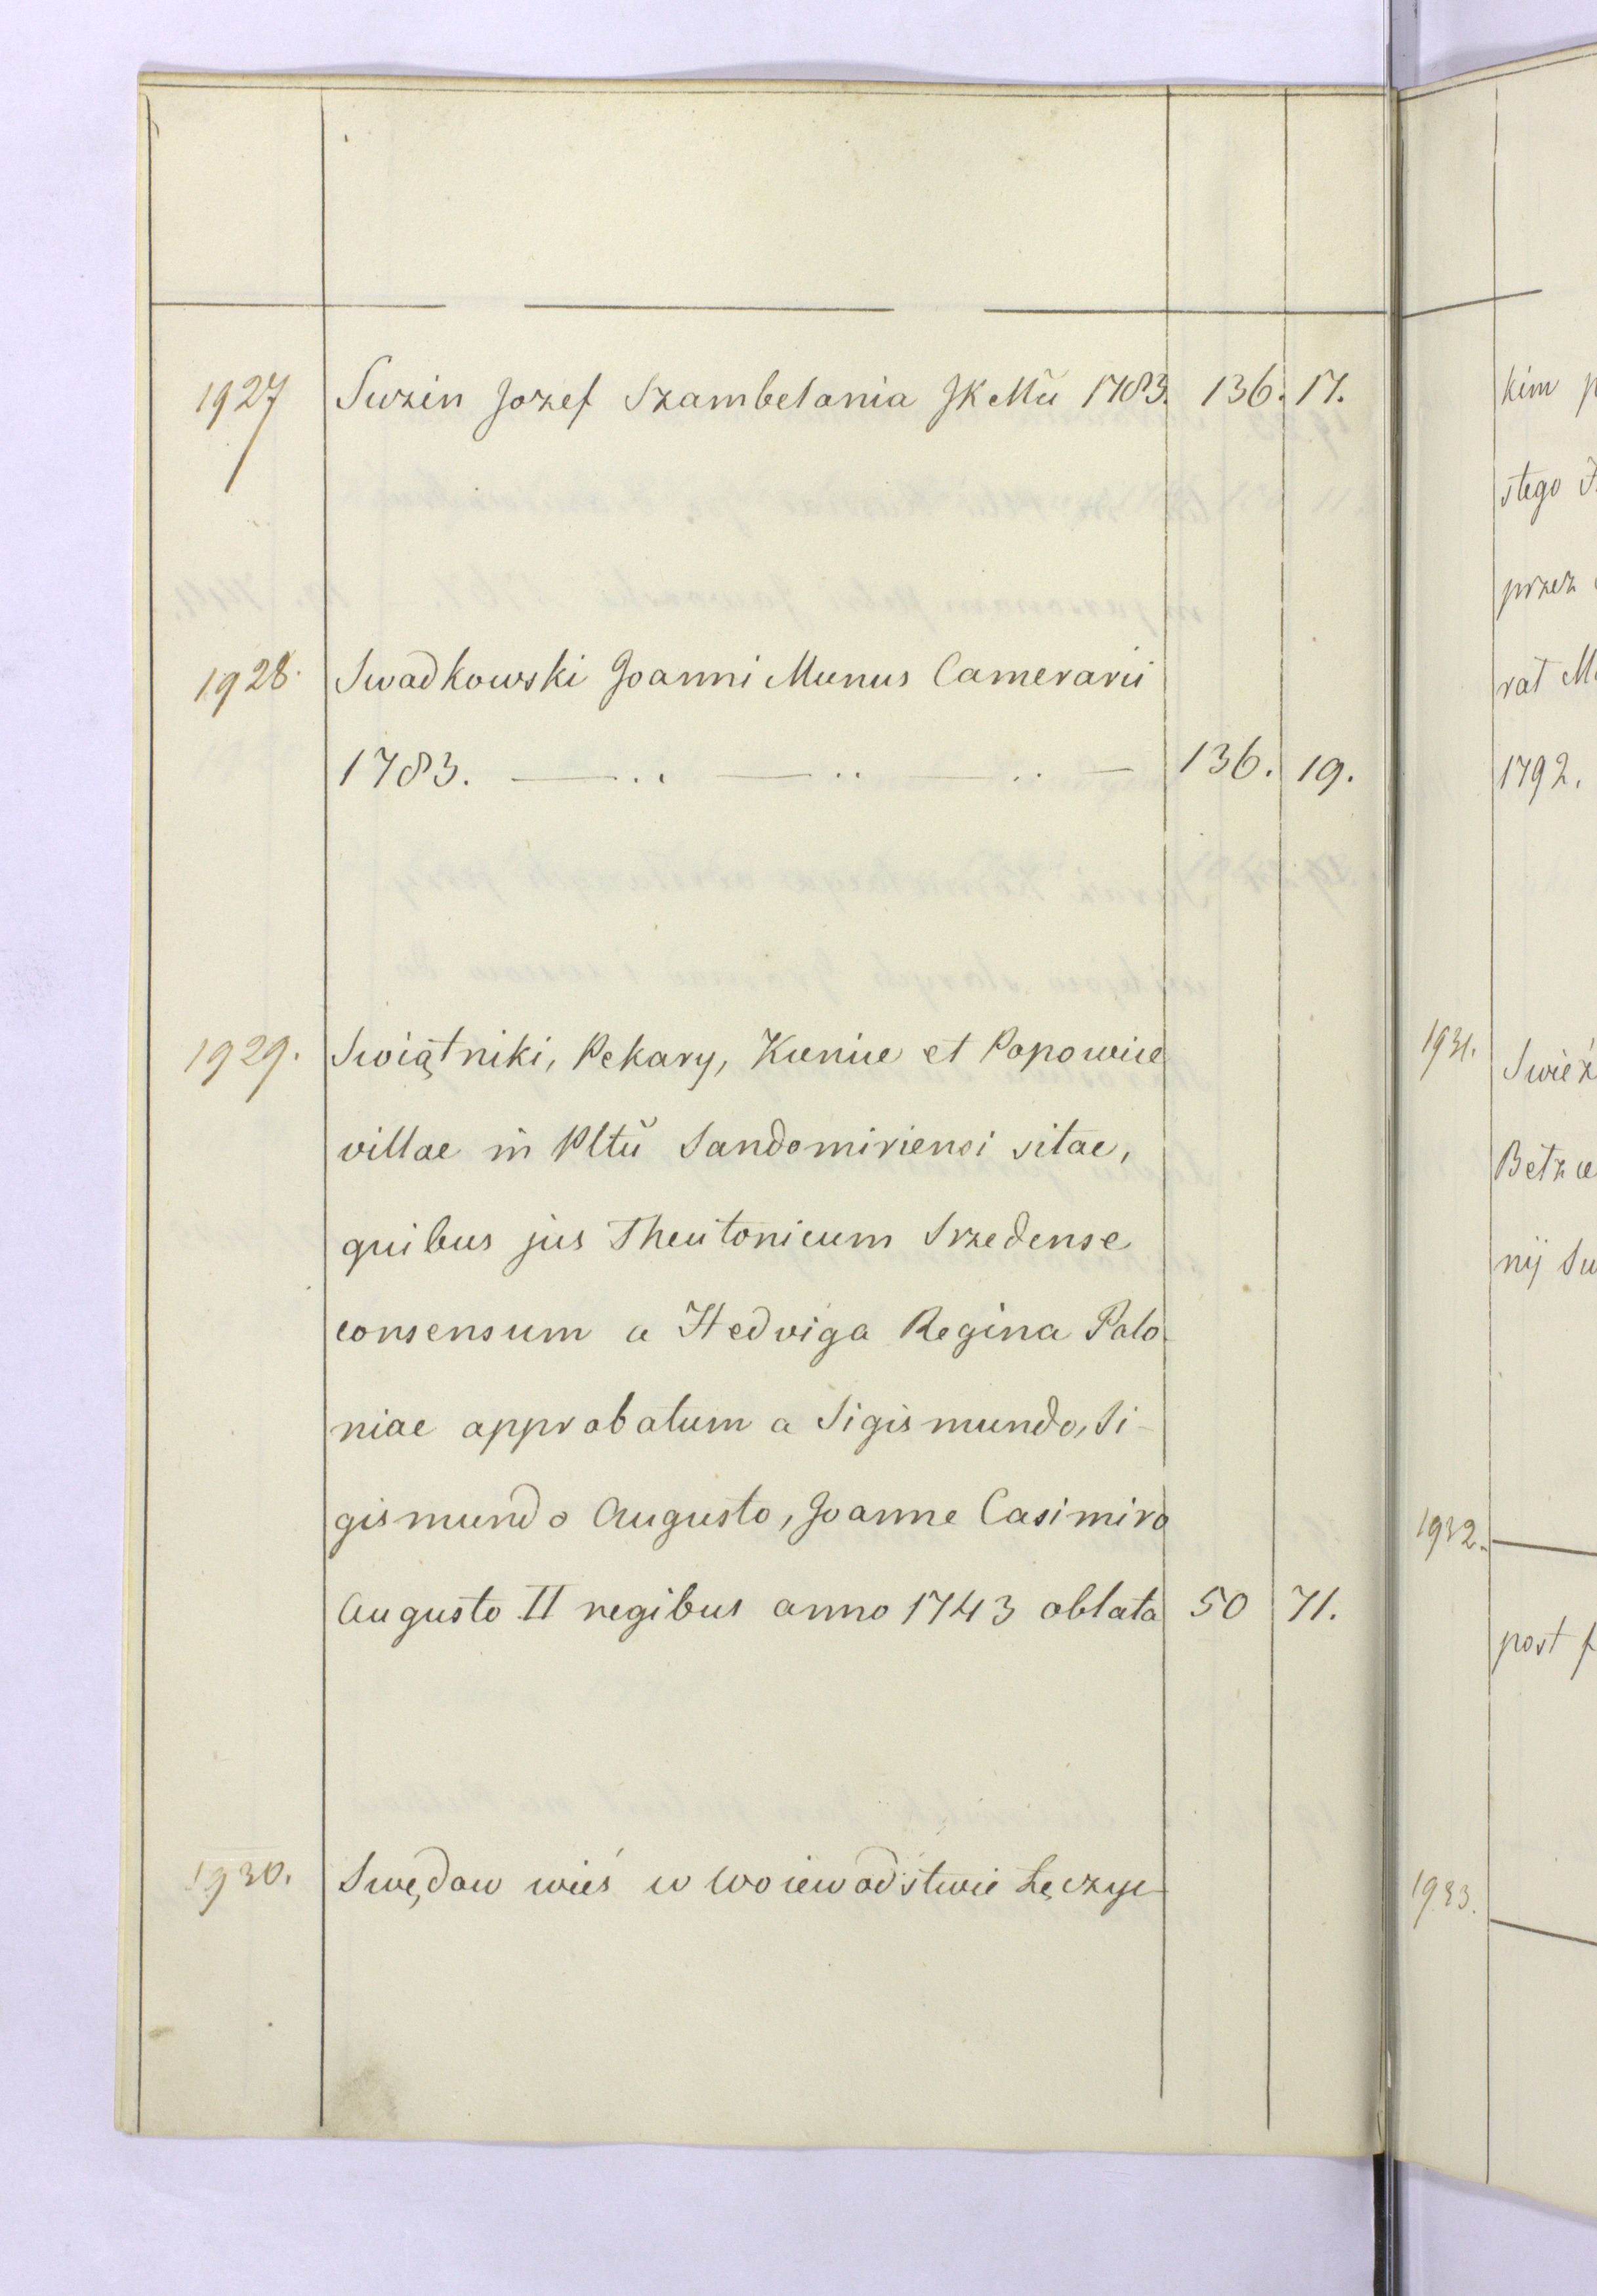 1927 Suzin Jozef Szambelania JKMĉi 1783. 136. 17.
1928. Swadkowski Joanni Munus Camerarii
1783. — .. — .. — .. — 136. 19.
1929. Swiątniki, Pekary, Kunice et Popowice
villae in Pltũ Sandomiriensi sitae,
quibus jus Theutonicum Srzedense
consensum a Hedviga Regina Polo
niae approbatum a Sigismundo, Si-
gismundo Augusto, Joanne Casimiro
Augusto II regibus anno 1743 oblata 50 71.
1930. Swędow wieś w Woiewodstwie Łęczyc-
kim
stego
przez
rat
1792.
1931.
nij
1932.
post
1933.